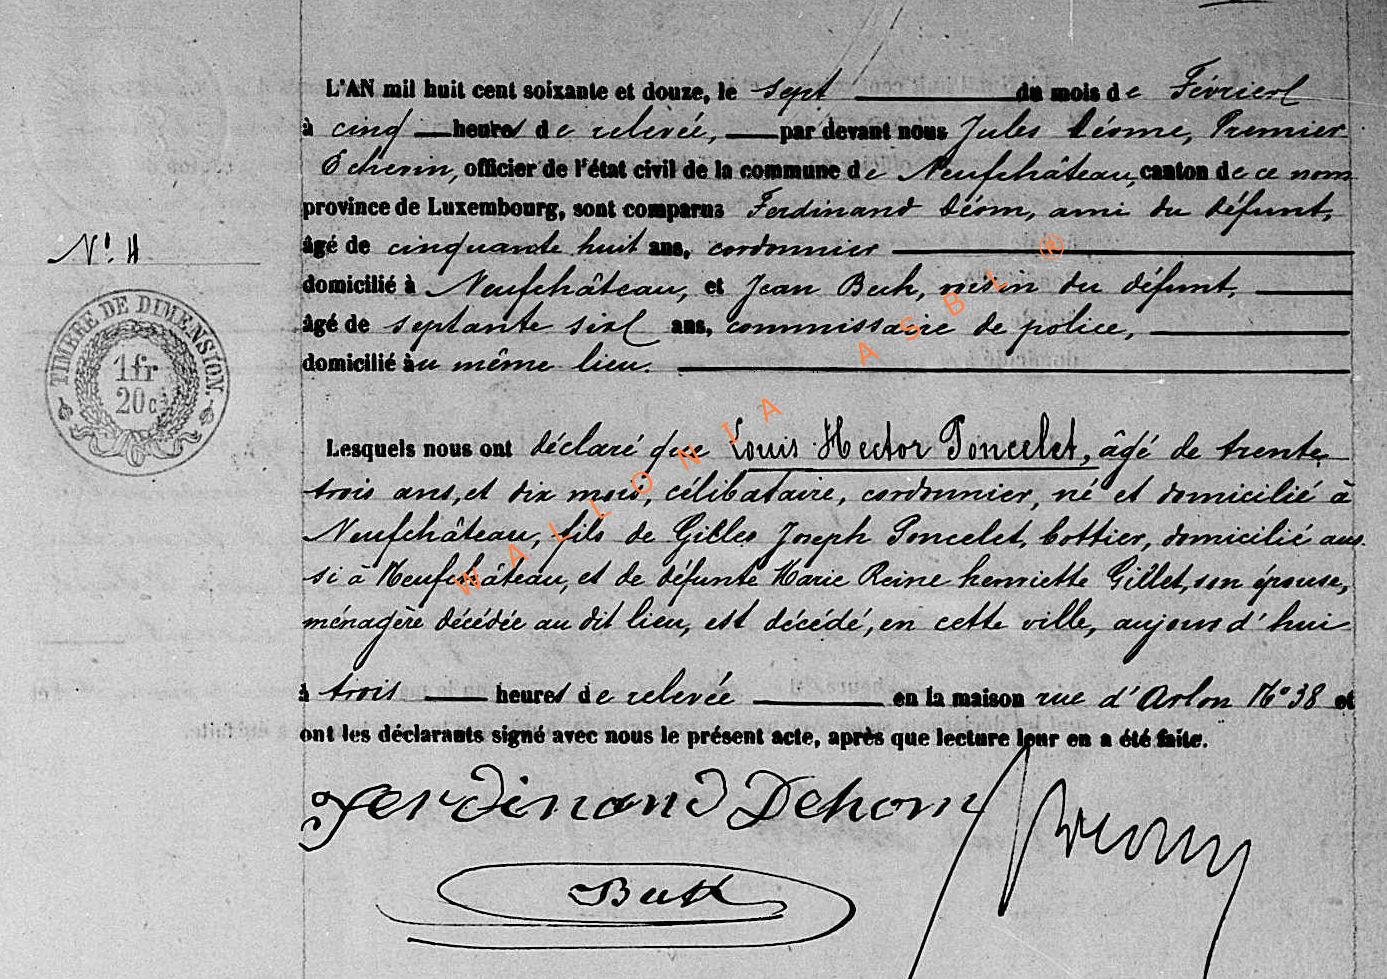 L'AN mil huit cent soixante et douze, le sept du mois de Février
à cinq heures de relevée, par devant nous Jules Léome, Premier
Echevin, officier de l'état civil de la commune de Neufchâteau, canton de ce nom
province de Luxembourg, sont comparus Ferdinand Déom, ami du défunt,
N° 4
âgé de cinquante huit ans, cordonnier
domicilié à Neufchâteau, et Jean Buth, voisin du défunt,
âgé de septante six ans, commissaire de police,
domicilié au même lieu.
TIMBRE DE DIMENSION.
1 fr
20 c
Lesquels nous ont déclaré que Louis Hector Poncelet, âgé de trente
trois ans, et dix mois, célibataire, cordonnier, né et domicilié à
Neufchâteau, fils de Gilles Joseph Poncelet, bottier, domicilié aus
si à Neufchâteau, et de défunte Marie Reine henriette Gillet, son épouse,
ménagère décédée au dit lieu, est décédé, en cette ville, aujourd'hui
à trois heures de relevée en la maison rue d'Arlon N° 38 et
ont les déclarants signé avec nous le présent acte, après que lecture leur en a été faite.
Ferdinand Dehom
Buth
WALLONIA ASBL ®